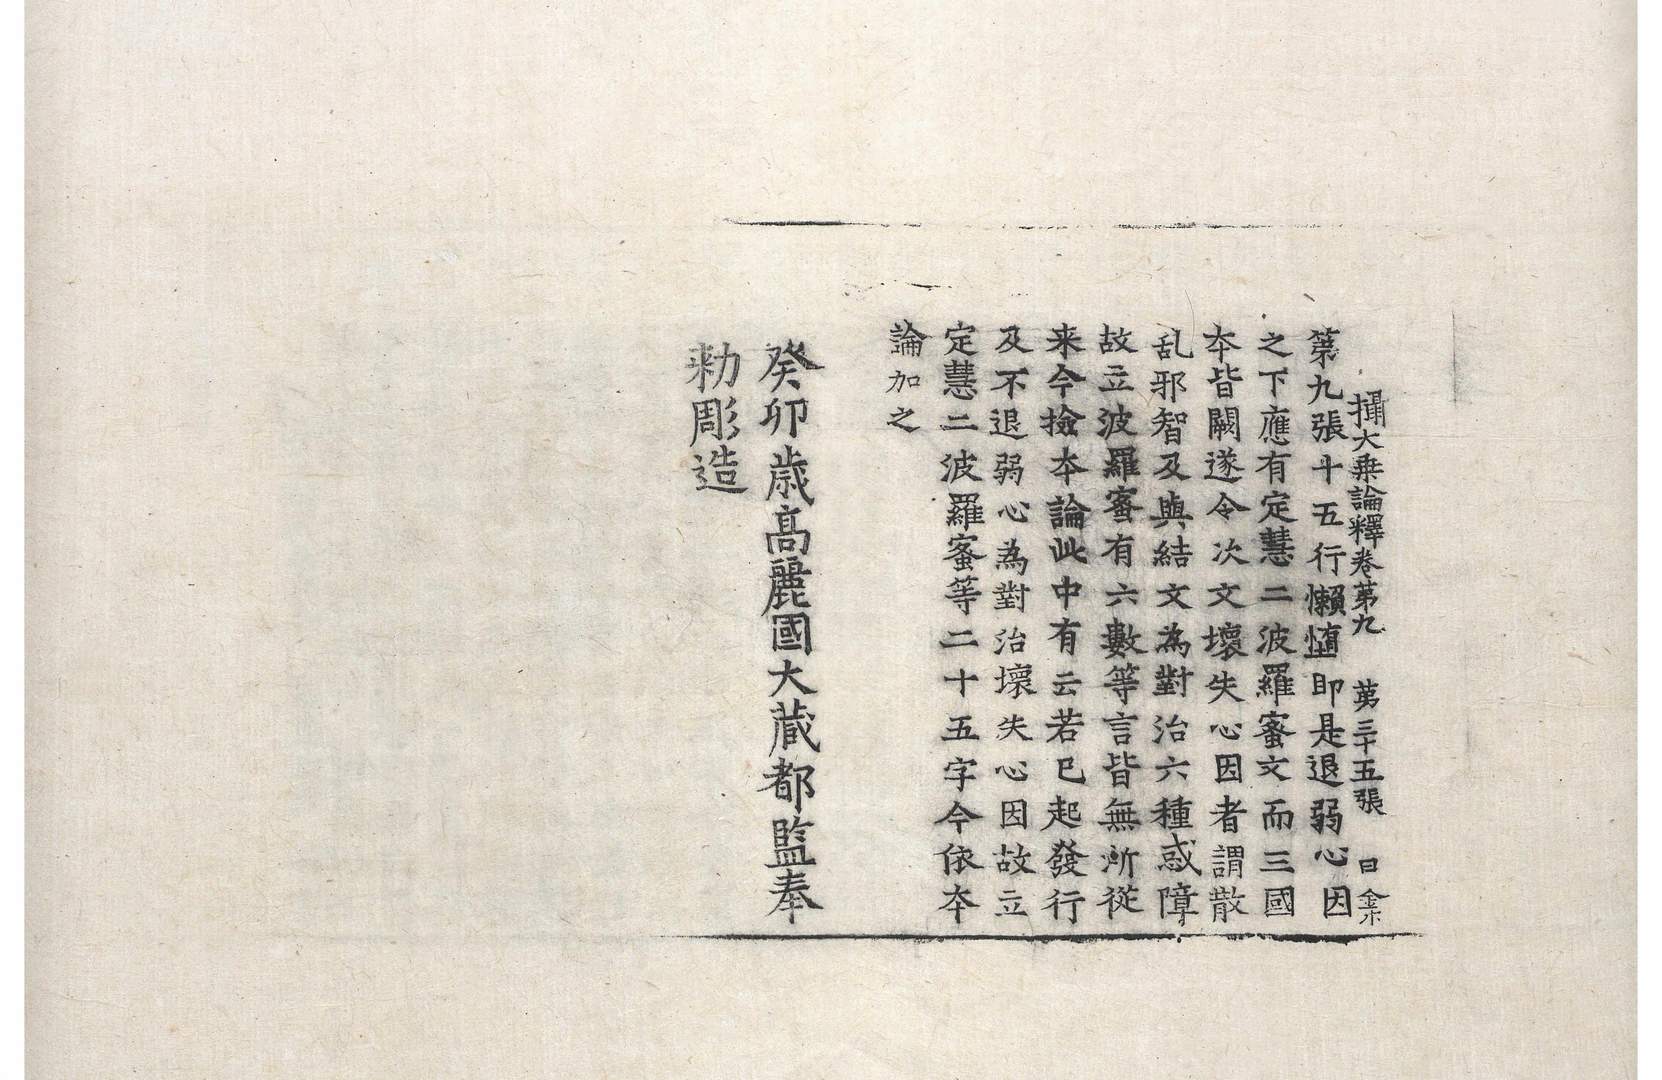 攝大乗論釋卷第九 第三十五張 曰
第九張十五行懶惰即是退弱心因
之下應有定慧二波羅蜜文而三國
夲皆闕遂令次文壞失心因者謂散
乱邪智及與結文為對治六種惑障
故立波羅蜜有六數等言皆無所從
来今撿夲論此中有云若已起發行
及不退弱心為對治壞失心因故立
定慧二波羅蜜等二十五字今依夲
論加之
癸卯歳高麗國大蔵都監奉
勑彫造